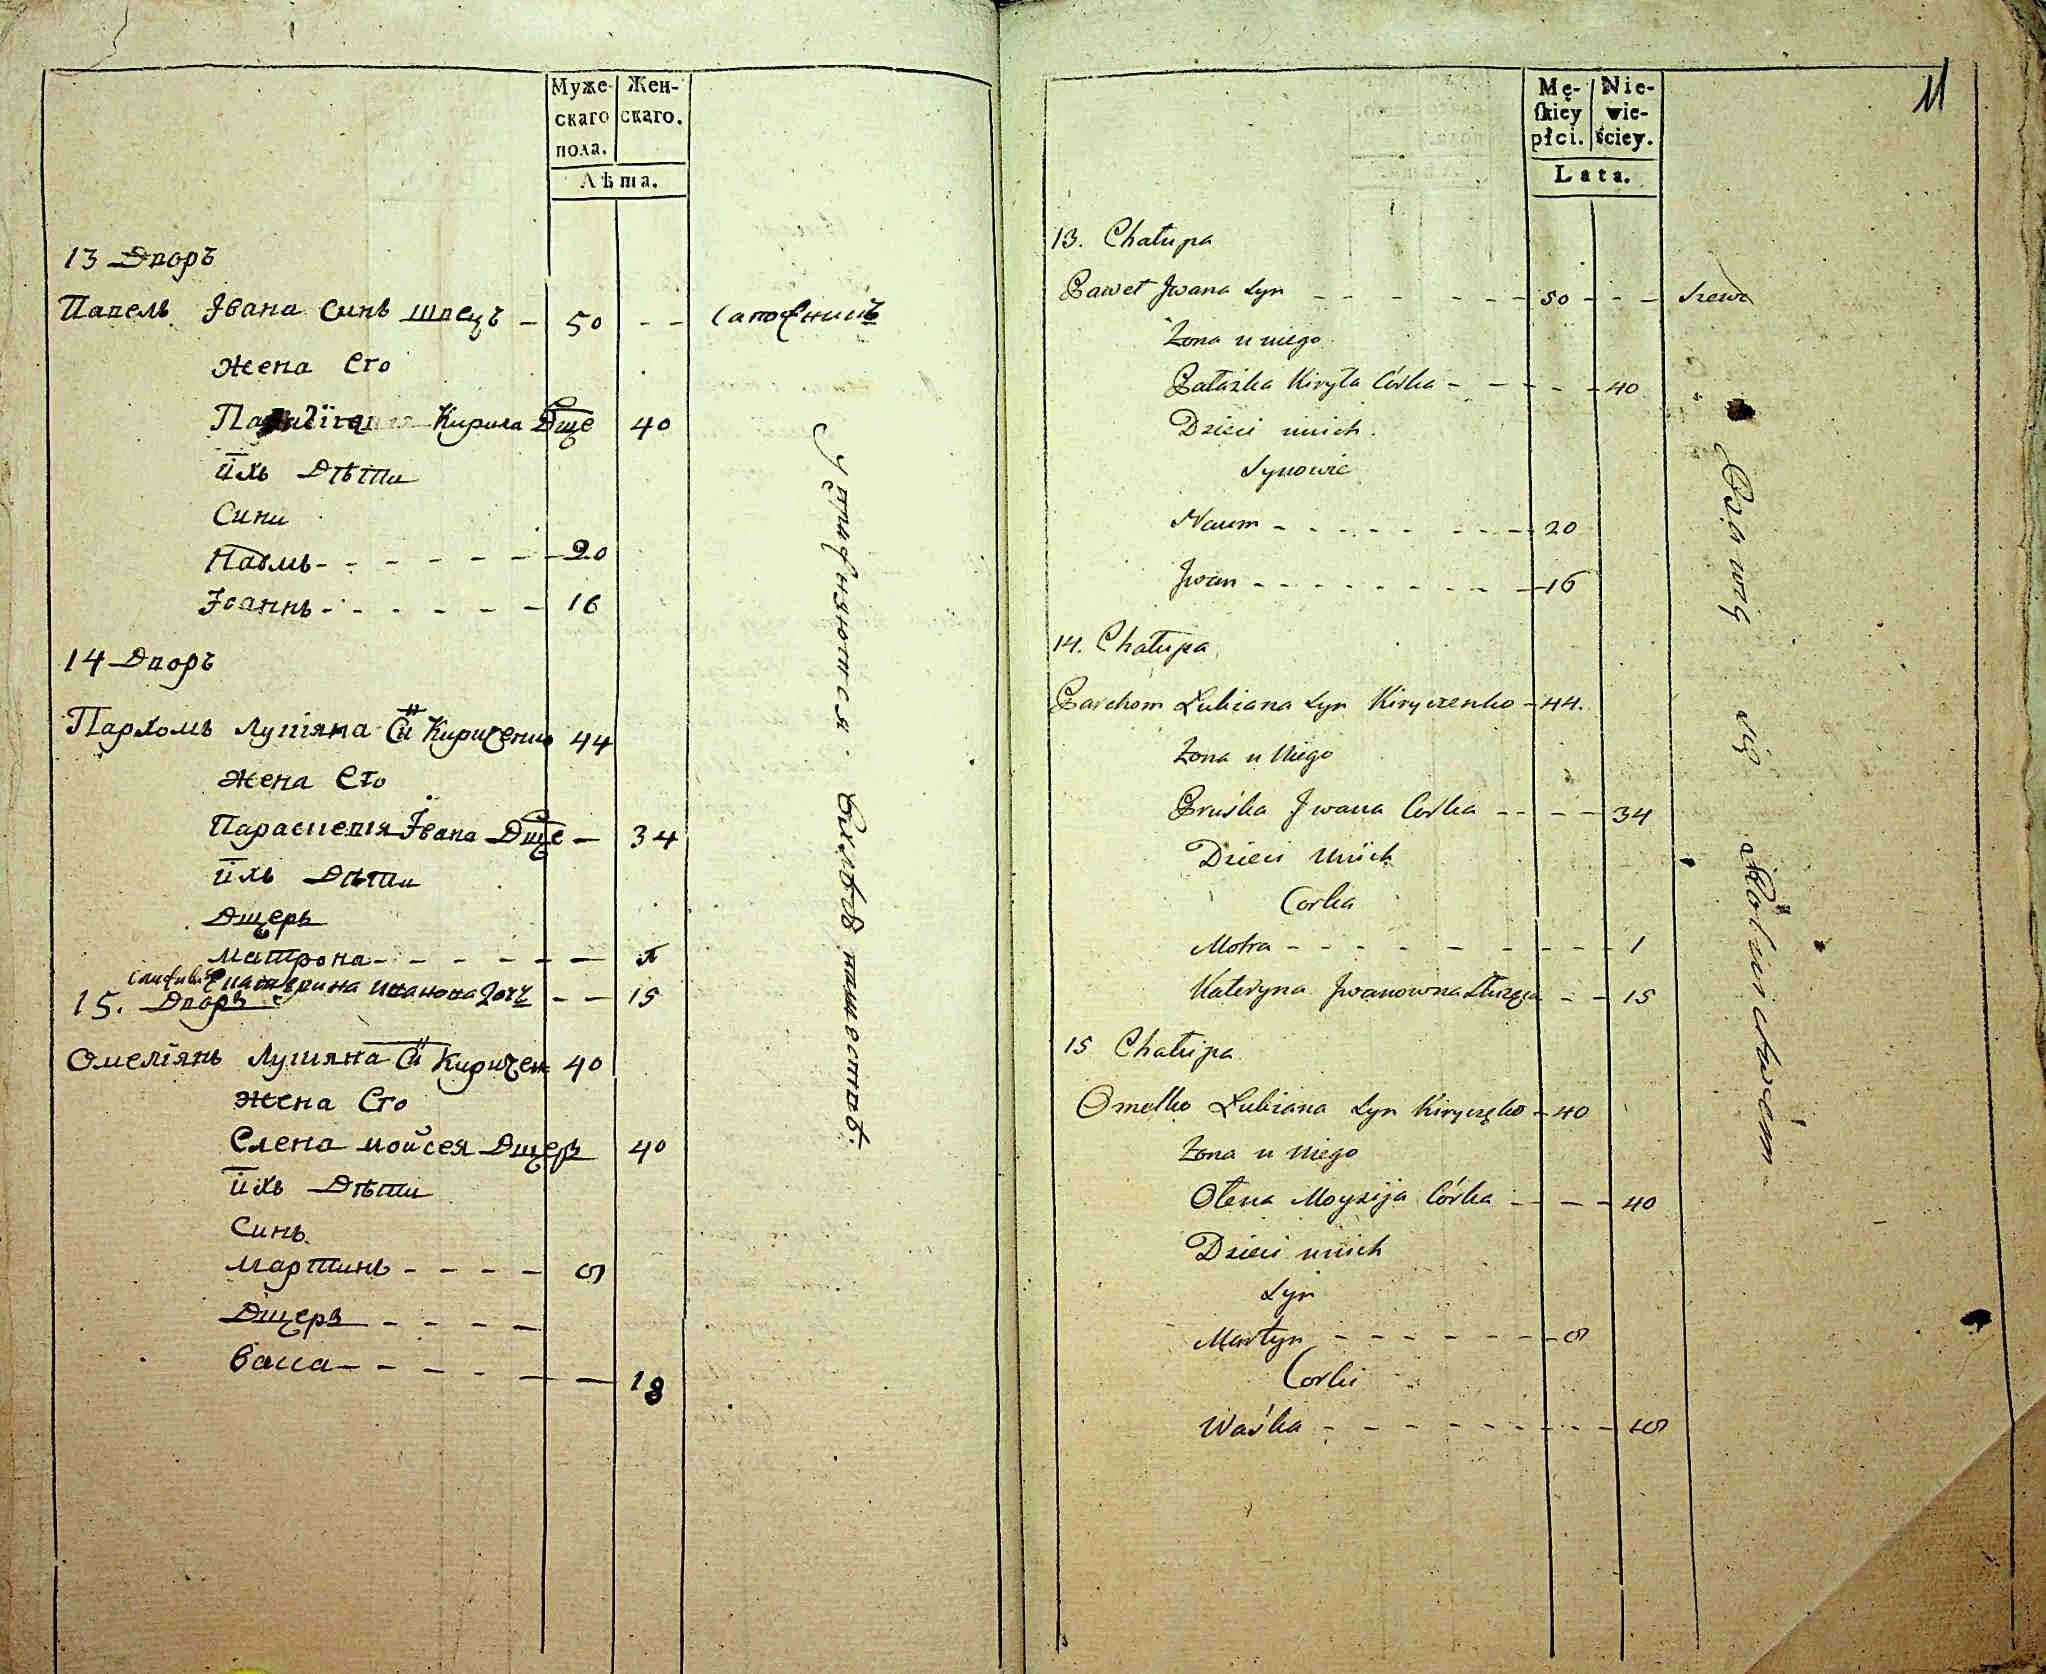 Муже-
скаго
пола.
Жен-
скаго.
Лѣта.
13 Дворъ
Павелъ Івана Синъ швецъ - 50 - - Сапожникъ
Жена Его
Кирила Дще 40
ихъ Дѣти
Сини
Наумъ - - - - - - 20
Іоаннъ - - - - - - 16
14 Дворъ
Пархомъ Лупіяна Си͞н Кириченко 44
Жена Его
Параскевия Івана Дще — 34
ихъ Дѣти
Дщерь
Матрона - - - - - - 1
Екатерина Иванова дочъ - - 15
15. Дворъ
Омеліянъ Лупіяна Си͞н Киричен 40
Жена Его
Елена Мойсея Дщерь 40
ихъ Дѣти
Синъ
Мартинъ - - - - 9
Дщерь - - - -
Васса - - - - - - 18
Упражняются в хлѣбопашествѣ.
11
Mę-
ſkiey
płci.
Nie-
wie-
ściey.
Lata.
13. Chałupa
Paweł Jwana Syn - - - - - 50 - - - Szewc
Żona u niego
Pałażka Kiryła Córka - - - - - 40
Dzieci unich
Synowie
Naum - - - - - - - 20
Jwan - - - - - - - - 16
14. Chałupa
Parchom Łukiana Syn Kiryczenko - 44.
Żona u Niego
Pruśka Jwana Corka - - - - 34
Dzieci Unich
Corka
Motra - - - - - - - - - 1
Kateryna Jwanowna Służąca - - 15
15 Chałupa
Omelko Łukiana Syn Kiryczęko - 40
Żona u Niego
Ołena Moysija Córka - - - - 40
Dzieci unich
Syn
Martyn - - - - - - - 9
Corki
Waśka - - - - - - - - - 18
Bawią się Rolnictwem